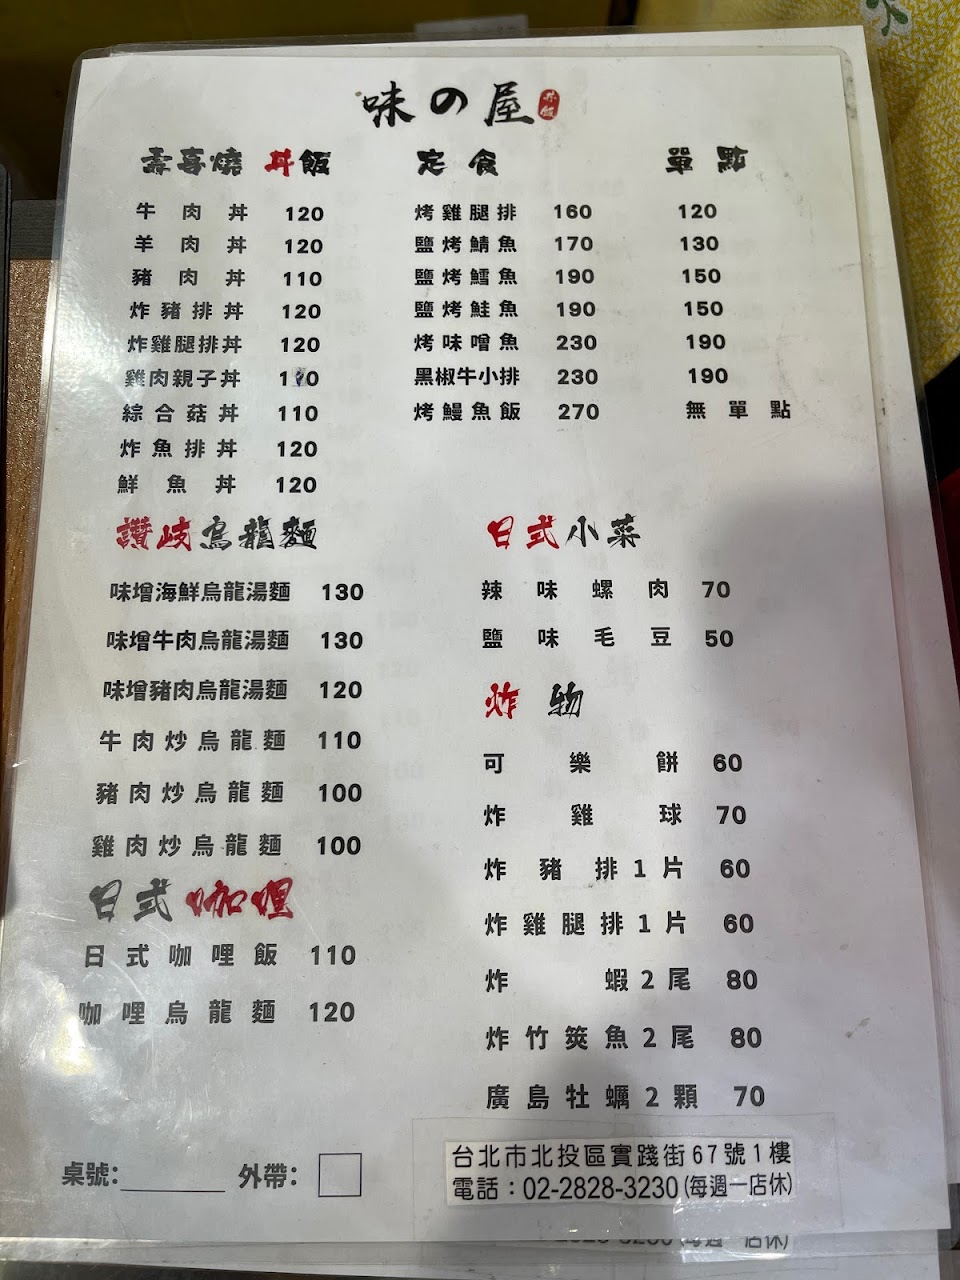 味の屋 丼飯
壽喜燒 丼飯
牛肉丼 120
羊肉丼 120
豬肉丼 110
炸豬排丼 120
炸雞腿排丼 120
雞肉親子丼 110
綜合菇丼 110
炸魚排丼 120
鮮魚丼 120
定食 單點
烤雞腿排 160 120
鹽烤鯖魚 170 130
鹽烤鱈魚 190 150
鹽烤鮭魚 190 150
烤味噌魚 230 190
黑椒牛小排 230 190
烤鰻魚飯 270 無單點
讚岐烏龍麵
味增海鮮烏龍湯麵 130
味增牛肉烏龍湯麵 130
味增豬肉烏龍湯麵 120
牛肉炒烏龍麵 110
豬肉炒烏龍麵 100
雞肉炒烏龍麵 100
日式咖哩
日式咖哩飯 110
咖哩烏龍麵 120
日式小菜
辣味螺肉 70
鹽味毛豆 50
炸物
可樂餅 60
炸雞球 70
炸豬排1片 60
炸雞腿排1片 60
炸蝦2尾 80
炸竹筴魚2尾 80
廣島牡蠣2顆 70
桌號:______ 外帶: □
台北市北投區實踐街67號1樓
電話:02-2828-3230(每週一店休)